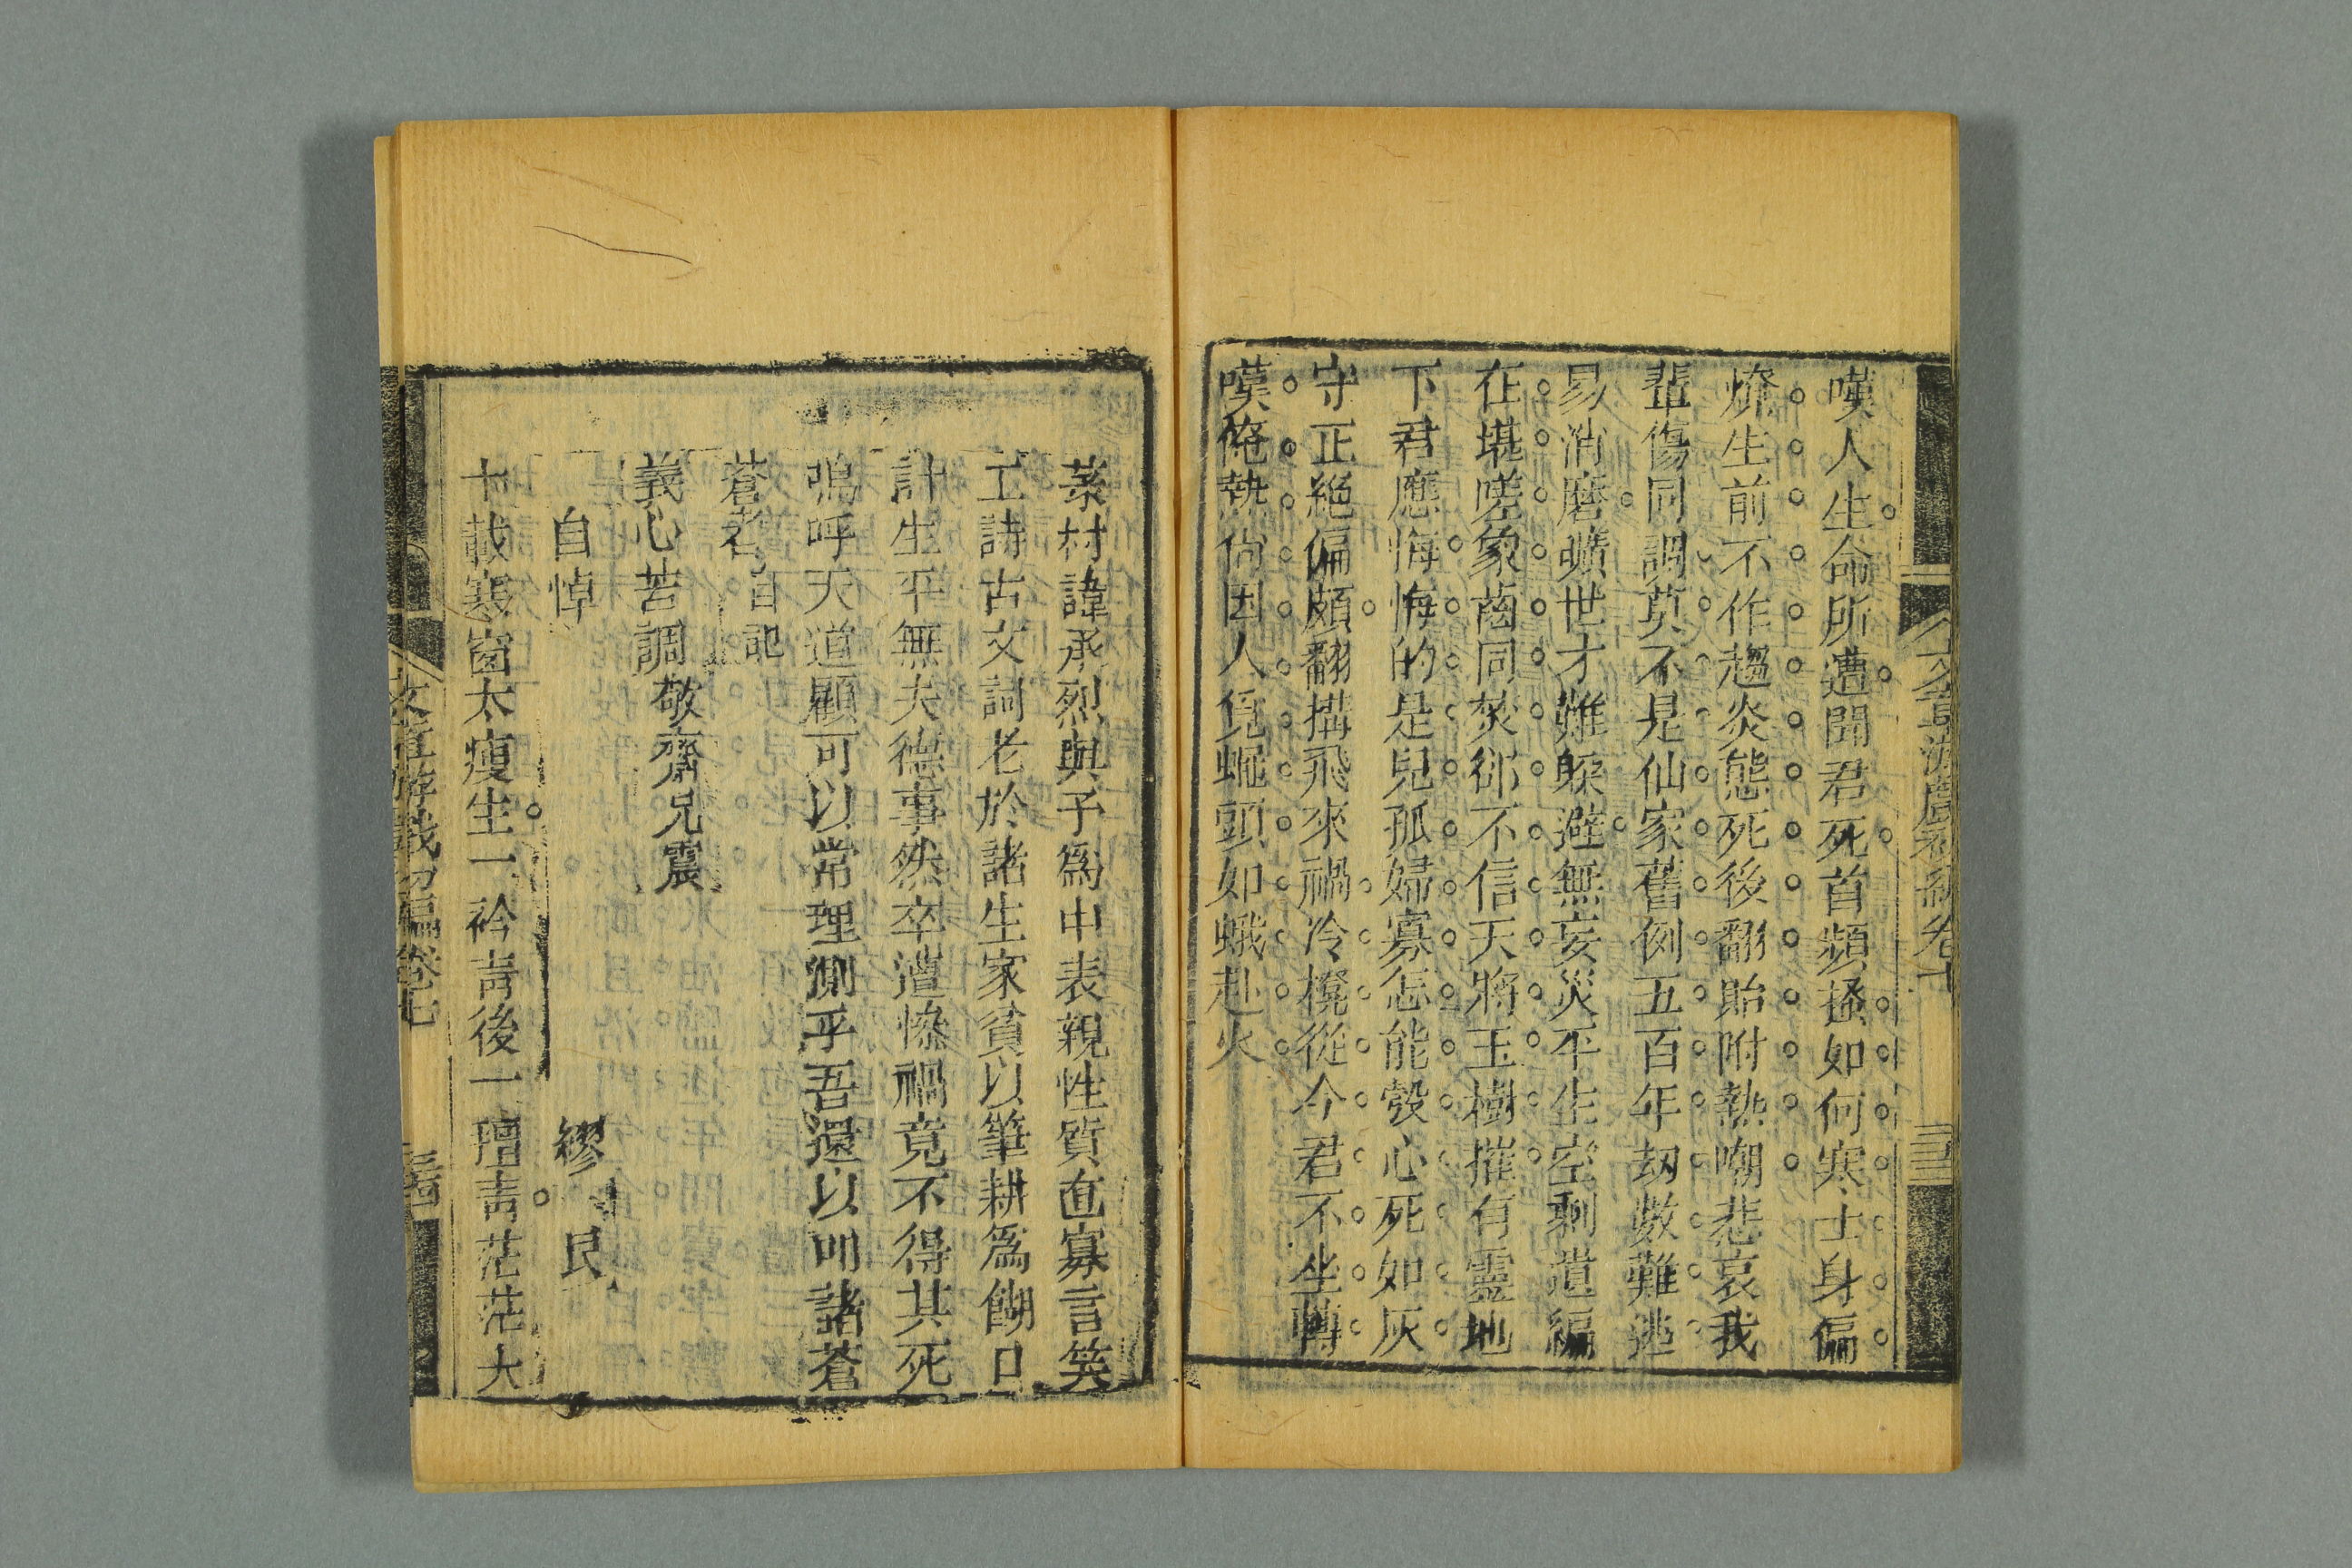 嘆人生命所遭聞君死首頻搔如何寒士身偏
燎生前不作趨炎態死後翻貽附熱嘲悲哀我
輩傷同調莫不是仙家舊例五百年劫數難逃
易消磨曠世才難躱避無妄災平生空剩遺編
在堪嗟象齒同焚郤不信天將玉樹摧有靈地
下君應悔悔的是兒孤婦寡怎能彀心死如灰
守正絕偏頗翻搆飛來禍冷櫈從今君不坐轉
嘆俺熱衷因人覓蠅頭如蛾赴火
文章游戲初編卷七
三
棻村諱承烈與予爲中表親性質直寡言笑
工詩古文詞老於諸生家貧以筆耕爲餬口
計生平無夫德事然卒遭慘禍竟不得其死
嗚呼天道顧可以常理測乎吾還以叩諸蒼
蒼者 自記
義心苦調 敬齋兄震
自悼 繆艮
十載寒窗太瘦生一衿青後一氊青茫茫大
文章游戲初編卷七